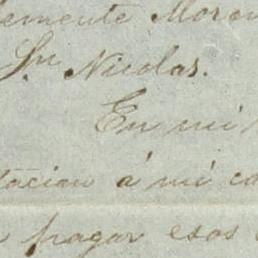 lemente Moren
Sn Nicolas.
En mi
tacion á mi ca
pagar esos